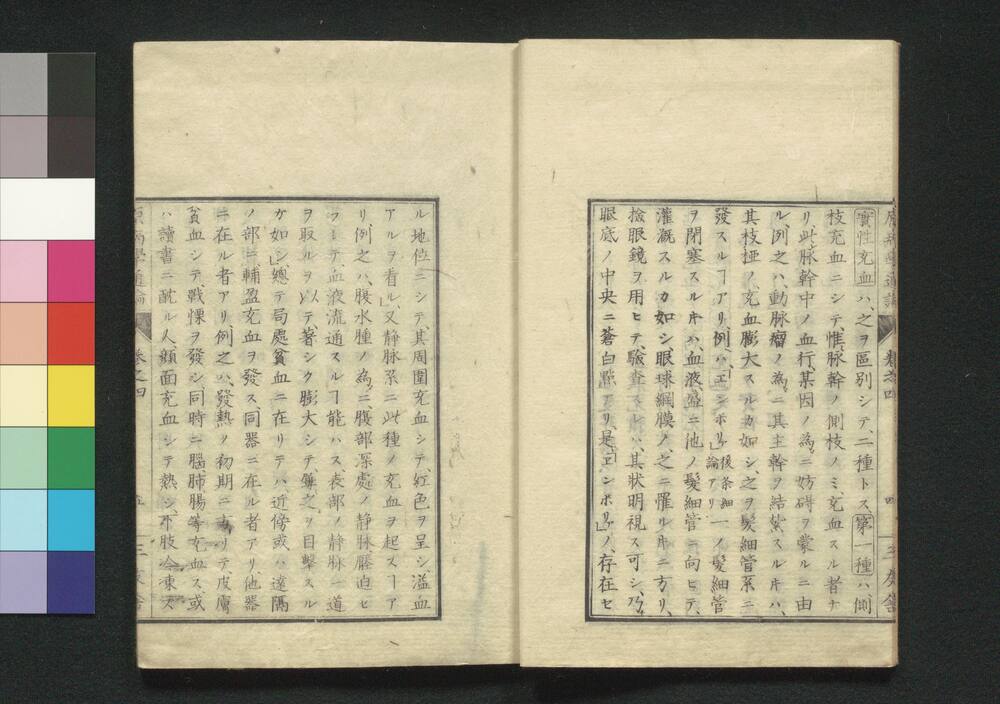 實性充血ハ、之ヲ區別シテ、二種トス、第一種ハ、側
枝充血ニシテ、惟脉幹ノ側枝ノミ、充血スル者ナ
リ、此脉幹中ノ血行、某因ノ為ニ妨碍ヲ蒙ルニ由
ル、例之ハ、動脉瘤ノ為ニ其主幹ヲ結紮スルキハ、
其枝極ノ充血膨大スルカ如シ、之ヲ髮細管系ニ
發スルヿアリ、例ハ「エンボリ」後条細論アリ一ノ髮細管
ヲ閉塞スルキハ、血液、盈ニ他ノ髮細管ニ向ヒテ、
灌漑スルカ如シ、眼球網膜ノ、之ニ罹ルキニ方リ、
撿眼鏡ヲ用ヒテ、驗査スレハ、其状明視ス可シ、乃
眼底ノ中央ニ蒼白點アリ、是「エンボリ」ノ、存在セ
ル地位ニシテ其周圍充血シテ、紅色ヲ呈シ溢血
アルヲ看ル」又静脉系ニ此種ノ充血ヲ起スヿア
リ、例之ハ、腹水腫ノ為ニ腹部深處ノ静脉壓迫セ
ラレテ、血液流通スルヿ能ハス表部ノ静脉一道
ヲ取ルヲ以テ著シク膨大シテ、之ヲ目擊スル
カ如シ」總テ局處貧血ニ在リテハ近傍或ハ遠隔
ノ部ニ輔盈充血ヲ發ス、同器ニ在ル者アリ他器
ニ在ル者アリ、例之ハ、發熱ノ初期ニ方リテ、皮膚
貧血シテ、戰慄ヲ發シ、同時ニ腦肺腸等充血ス、或
ハ讀書ニ耽ル人、顔面充血シテ熱シ、下肢冷凍ス
原病學通論
卷之四
五
三友舎